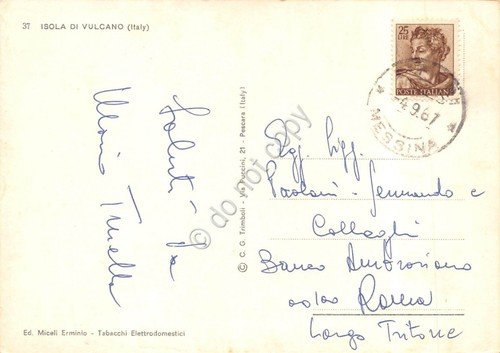 37 ISOLA DI VULCANO (Italy)
Saluti da
25
LIRE
POSTE ITALIANE
4.9.67
MESSINA
© C. G. Trimboli - Via Puccini, 21 - Pescara (Italy)
do not copy
Paolani - Fernando e
Colleghi
Banco Ambrosiano
00100 Roma
Largo Tritone
Ed. Miceli Erminio - Tabacchi Elettrodomestici